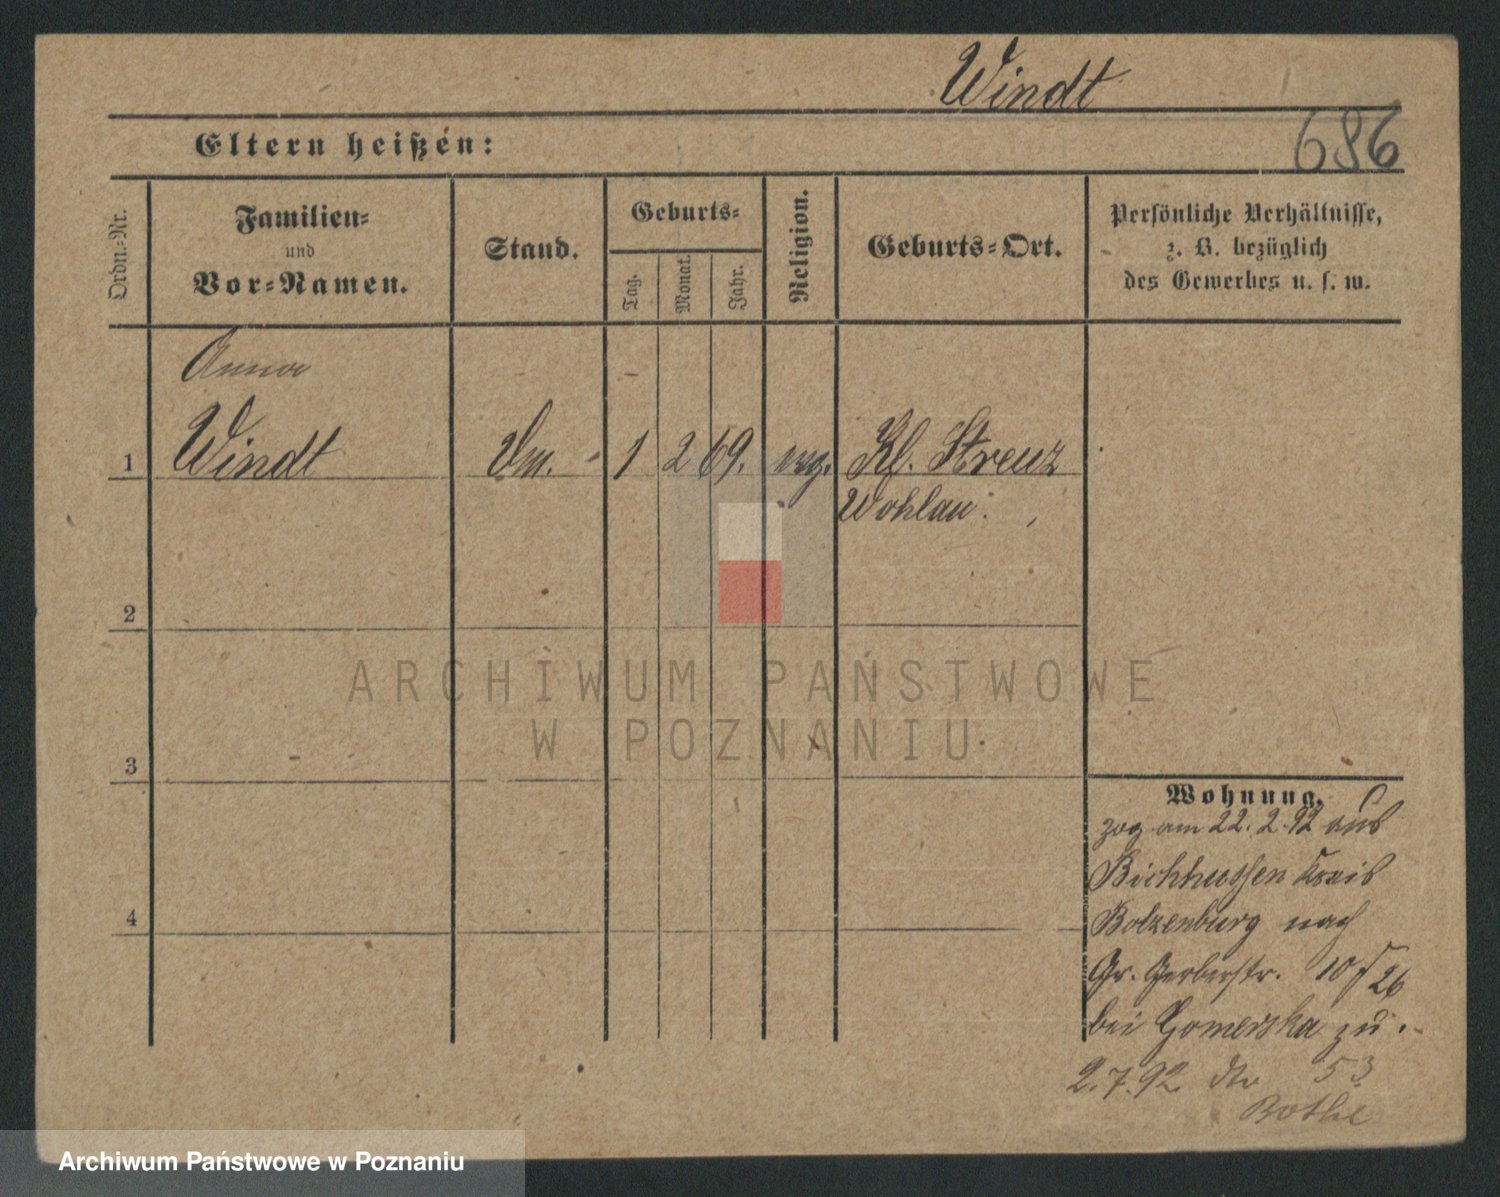 Windt
686
Eltern heißen:
Ordn.-Nr.
Familien-
und
Vor-Namen.
Stand.
Geburts-
Tag.
Monat.
Jahr.
Religion.
Geburts-Ort.
Persönliche Verhältnisse,
z. B. bezüglich
des Gewerbes u. s. w.
Anna
1 Windt 1 2 69. evg. Kl. Strenz
Wohlau.
2
3
4
Wohnung.
zog am 22. 2. 92 aus
Kreis
Bolzenburg nach
Gr. Gerberstr. 10 / 26
bei Gomerska zu.
2. 7. 92 dto 53
Bothe
ARCHIWUM PAŃSTWOWE
W POZNANIU
Archiwum Państwowe w Poznaniu